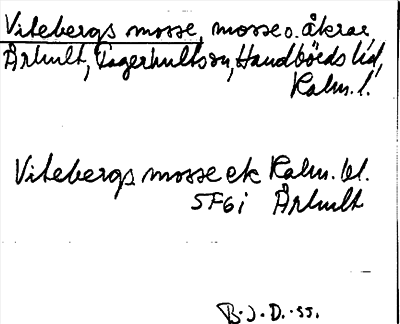 Vitebergs mosse, mosse o. åkrar,
Århult, Fagerhults sn, Handbörds hd,
Kalm. l.
Vitebergs mosse ek Kalm. bl.
5F6i Århult
B.J.D. -55.